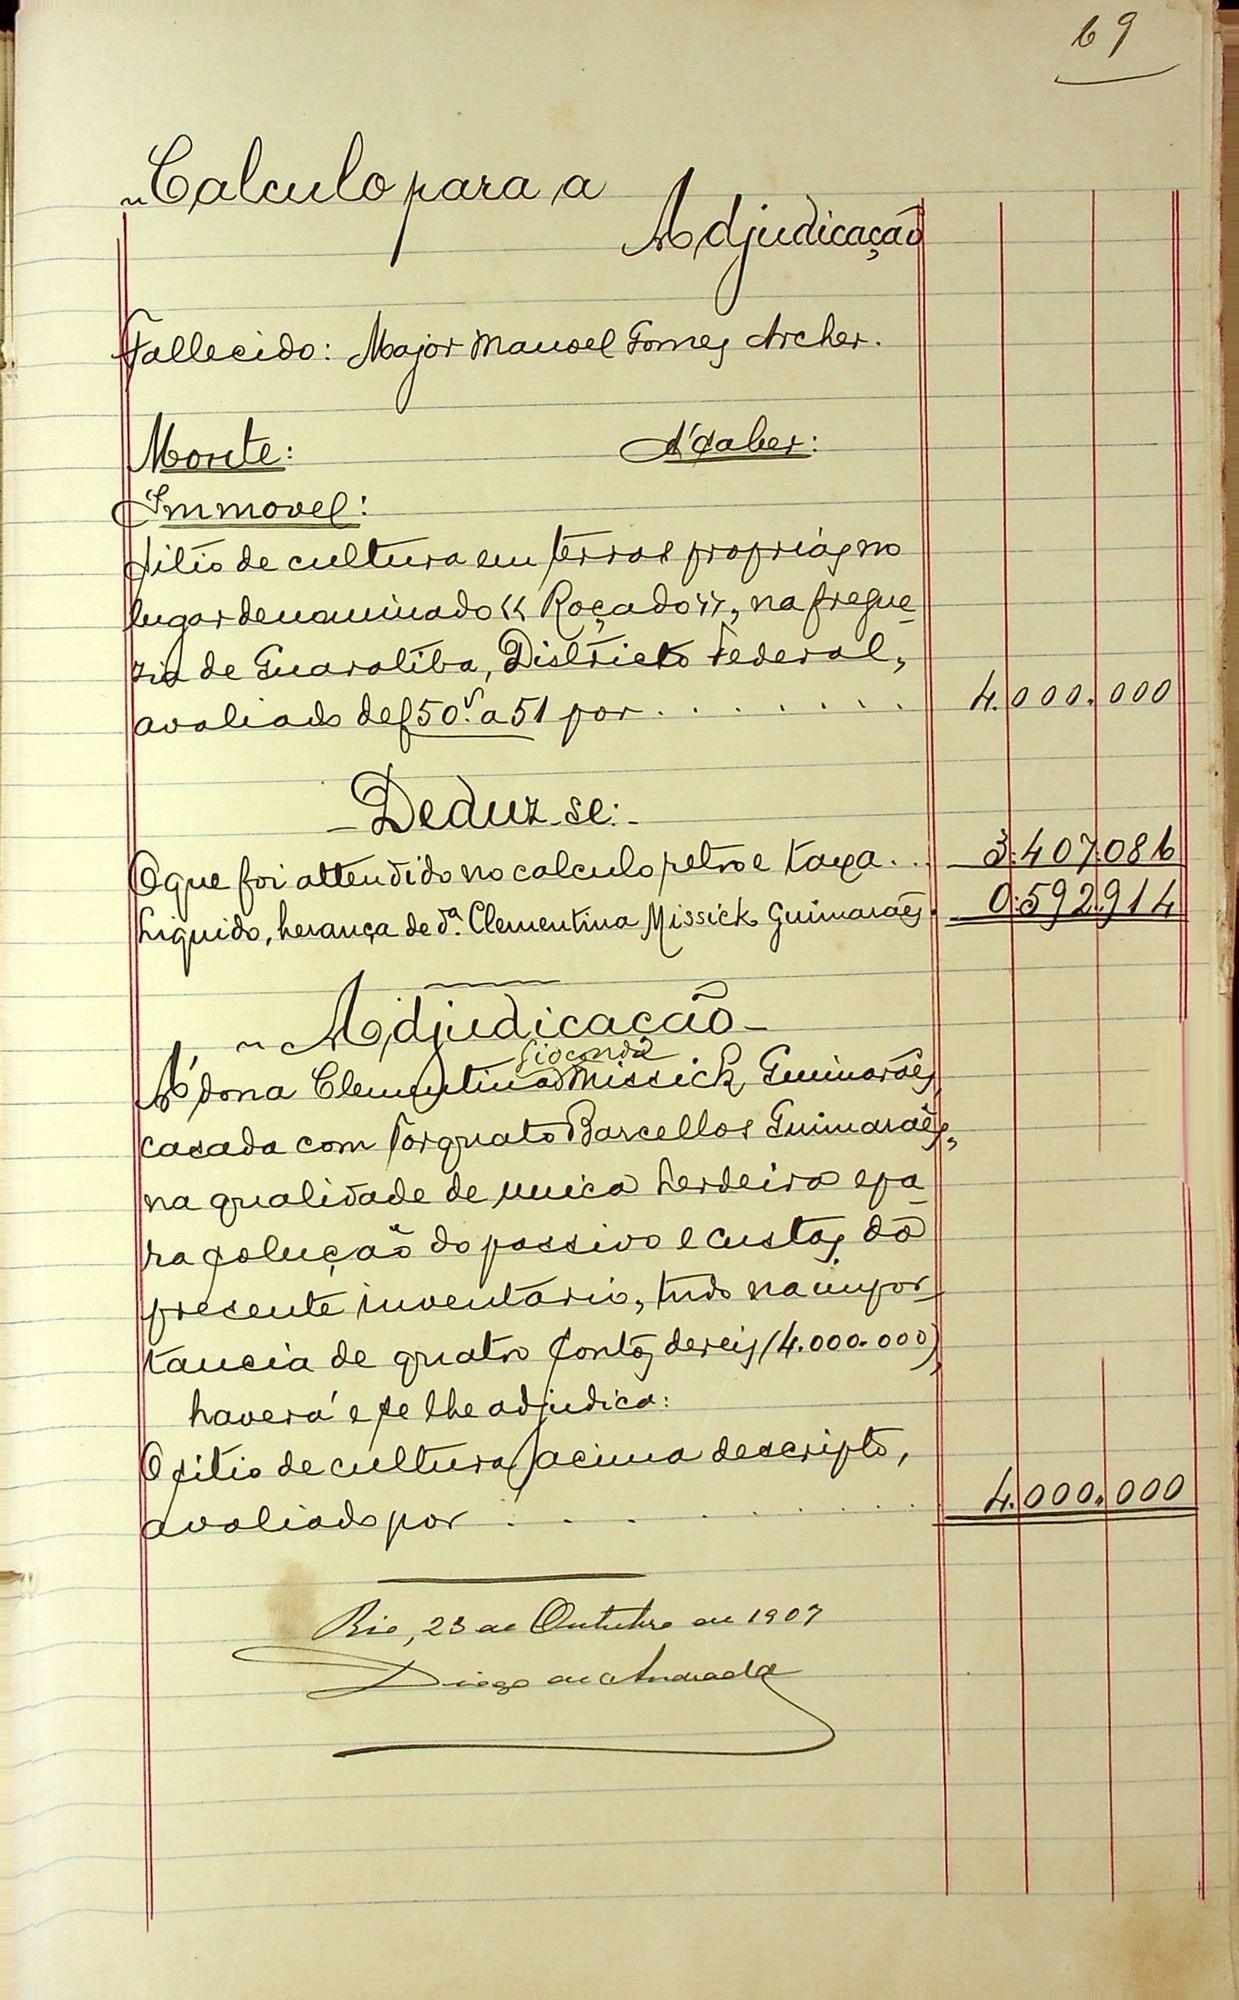 69
Calculo para a
Adjudicação
Fallecido: Major Manoel Gomes Archer.
Monte: A' saber:
Immovel:
Sitio de cultura em terras proprias no
lugar denominado "Roçado", na fregue-
zia de Guaratiba, Districto Federal,
avaliado de f 50v. a 51 por . . . . . . . 4.000.000
- Deduz-se: -
O que foi attendido no calculo retro e taxa . . . 3.407.086
Liquido, herança de dª. Clementina Missick Guimarães. 0.592.914
Adjudicacão -
Gioconda
A' dona Clementina Missick Guimarães,
casada com Torquato Barcellos Guimarães,
na qualidade de unica herdeira e pa-
ra solução do passivo e custas do
presente inventario, tudo na impor-
tancia de quatro contos de reis (4.000.000),
haverá e se lhe adjudica:
O sitio de cultura acima descripto,
avaliado por . . . . . . . 4.000.000
Rio, 23 de Outubro de 1907
Diogo de Andrada